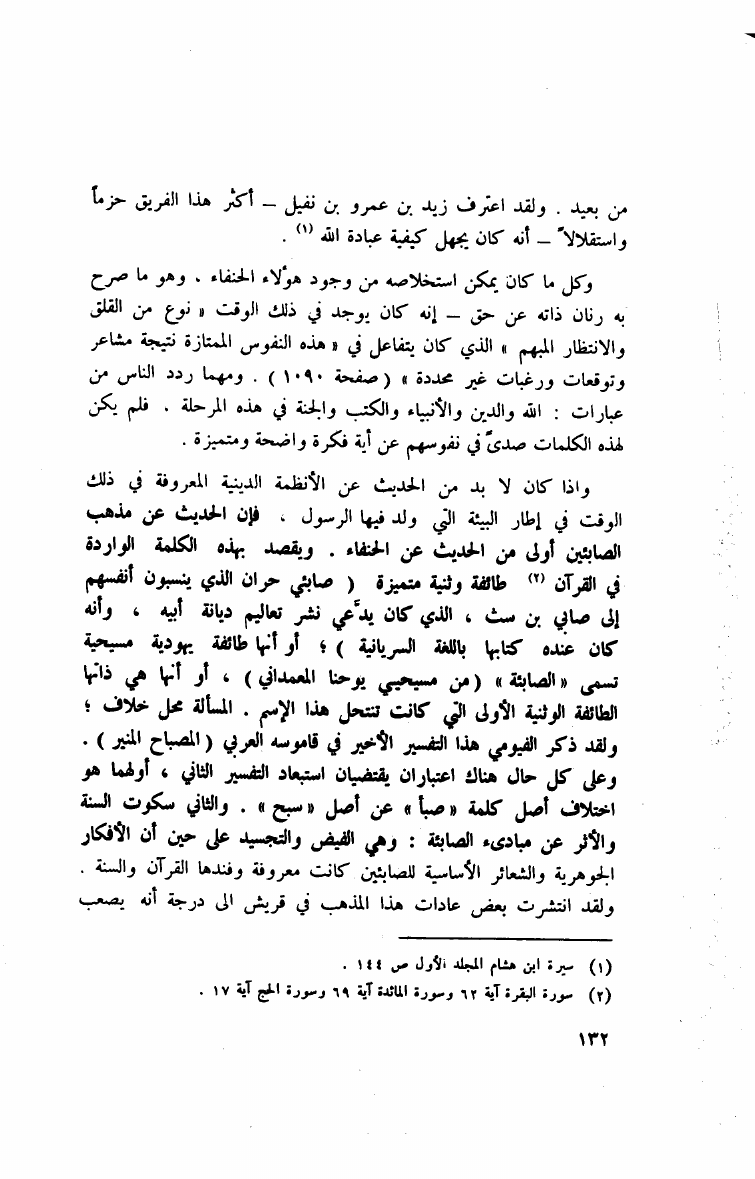 من بعيد . ولقد اعترف زيد بن عمرو بن نفيل – أكثر هذا الفريق حزماً
واستقلالاً – أنه كان يجهل كيفية عبادة الله (١) .
وكل ما كان يمكن استخلاصه من وجود هؤلاء الحنفاء ، وهو ما صرح
به رنان ذاته عن حق – إنه كان يوجد في ذلك الوقت « نوع من القلق
والانتظار المبهم » الذي كان يتفاعل في « هذه النفوس الممتازة نتيجة مشاعر
وتوقعات ورغبات غير محددة » ( صفحة ١٠٩٠ ) . ومهما ردد الناس من
عبارات : الله والدين والأنبياء والكتب والجنة في هذه المرحلة . فلم يكن
لهذه الكلمات صدىً في نفوسهم عن أية فكرة واضحة ومتميزة .
واذا كان لا بد من الحديث عن الأنظمة الدينية المعروفة في ذلك
الوقت في إطار البيئة التي ولد فيها الرسول ، فإن الحديث عن مذهب
الصابئين أولى من الحديث عن الحنفاء . ويقصد بهذه الكلمة الواردة
في القرآن (٢) طائفة وثنية متميزة ( صابئي حران الذي ينسبون أنفسهم
إلى صابي بن سث ، الذي كان يدَّعي نشر تعاليم ديانة أبيه ، وأنه
كان عنده كتابها باللغة السريانية ) ؛ أو أنها طائفة يهودية مسيحية
تسمى « الصابئة » (من مسيحيي يوحنا المعمداني) ، أو أنها هي ذاتها
الطائفة الوثنية الأولى التي كانت تنتحل هذا الإسم . المسألة محل خلاف ؛
ولقد ذكر الفيومي هذا التفسير الأخير في قاموسه العربي ( المصباح المنير ) .
وعلى كل حال هناك اعتباران يقتضيان استبعاد التفسير الثاني ، أولهما هو
اختلاف أصل كلمة « صبأ » عن أصل « سبح » . والثاني سكوت السنة
والأثر عن مبادىء الصابئة : وهي الفيض والتجسيد على حين أن الأفكار
الجوهرية والشعائر الأساسية للصابئين كانت معروفة وفندها القرآن والسنة .
ولقد انتشرت بعض عادات هذا المذهب في قريش الى درجة أنه يصعب
(١) سيرة ابن هشام المجلد الأول ص ١٤٤ .
(٢) سورة البقرة آية ٦٢ وسورة المائدة آية ٦٩ وسورة الحج آية ١٧ .
١٣٢